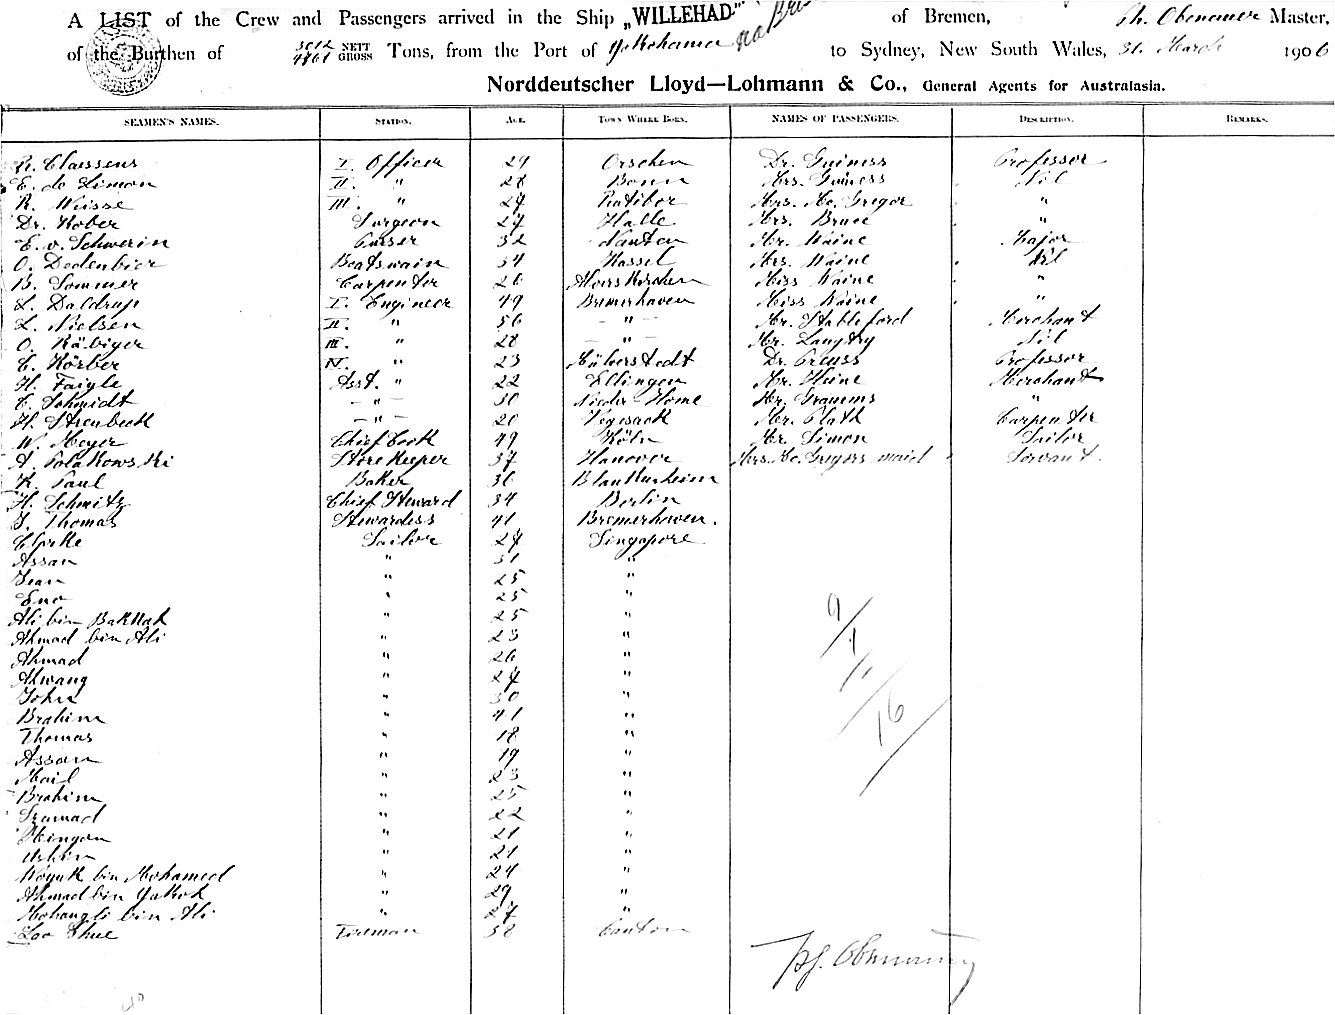 A LIST of the Crew and Passengers arrived in the Ship „WILLEHAD" of Bremen, Ph. Obenauer Master,
of the Burthen of 3012 NETT 4761 GROSS Tons, from the Port of Yokohama to Sydney, New South Wales, 31. March 1906
Norddeutscher Lloyd—Lohmann & Co., General Agents for Australasia.
SEAMEN'S NAMES. STATION. AGE. TOWN WHERE BORN. NAMES OF PASSENGERS. DESCRIPTION. REMARKS.
R. Claessens I. Officer 29 Orschen Dr. Guiness Professor
E. de Limon II. " 28 Bonn Mrs. Guiness Nil
R. Weisse III. " 27 Ratibor Mrs. Mc. Gregor "
Dr. Kober Surgeon 27 Halle Mrs. Bruce "
E. v. Schwerin Purser 32 Xanten Mr. Waine Major
O. Dedenbier Boatswain 34 Kassel Mrs. Waine Nil
B. Sommer Carpenter 26 Miss Waine "
L. Daldrup I. Engineer 49 Bremerhaven Miss Waine "
L. Nielsen II. " 56 — " — Mr. Stableford Merchant
O. Räbiger III. " 28 — " — Mr. Langtry Nil
C. Körber IV. " 23 Hülverstedt Dr. Preuss Professor
H. Faigle Asst. " 22 Ellingen Mr. Heine Merchant
C. Schmidt — " — 30 Nieder-Home Mr. Gramms "
H. Strenbeck — " — 20 Vegesack Mr. Plath Carpenter
W. Meyer Chief Cook 49 Köln Mr. Simon Sailor
A. Polakowski Storekeeper 37 Hanover Mrs. Mc. Gregors maid Servant
K. Paul Baker 36 Blankusheim
H. Schmitz Chief Steward 34 Berlin
J. Thomas Stewardess 41 Bremerhaven.
Sailor 27 Singapore
Assan " 31 "
Jean " 25 "
Eno " 25 "
Ali bin Bakkak " 25 "
Ahmad bin Ali " 23 "
Ahmad " 26 "
Akwang " 27 "
John " 30 "
Brahim " 41 "
Thomas " 18 "
Assan " 19 "
Mail " 23 "
Brahim " 25 "
Sramad " 22 "
" 21 "
" 21 "
bin Mohamed " 24 "
Ahmad bin Yakok " 29 "
bin Ali " 27 "
Loo Shue Fireman 38 Canton
9
1
11
16
Ph. Obenauer